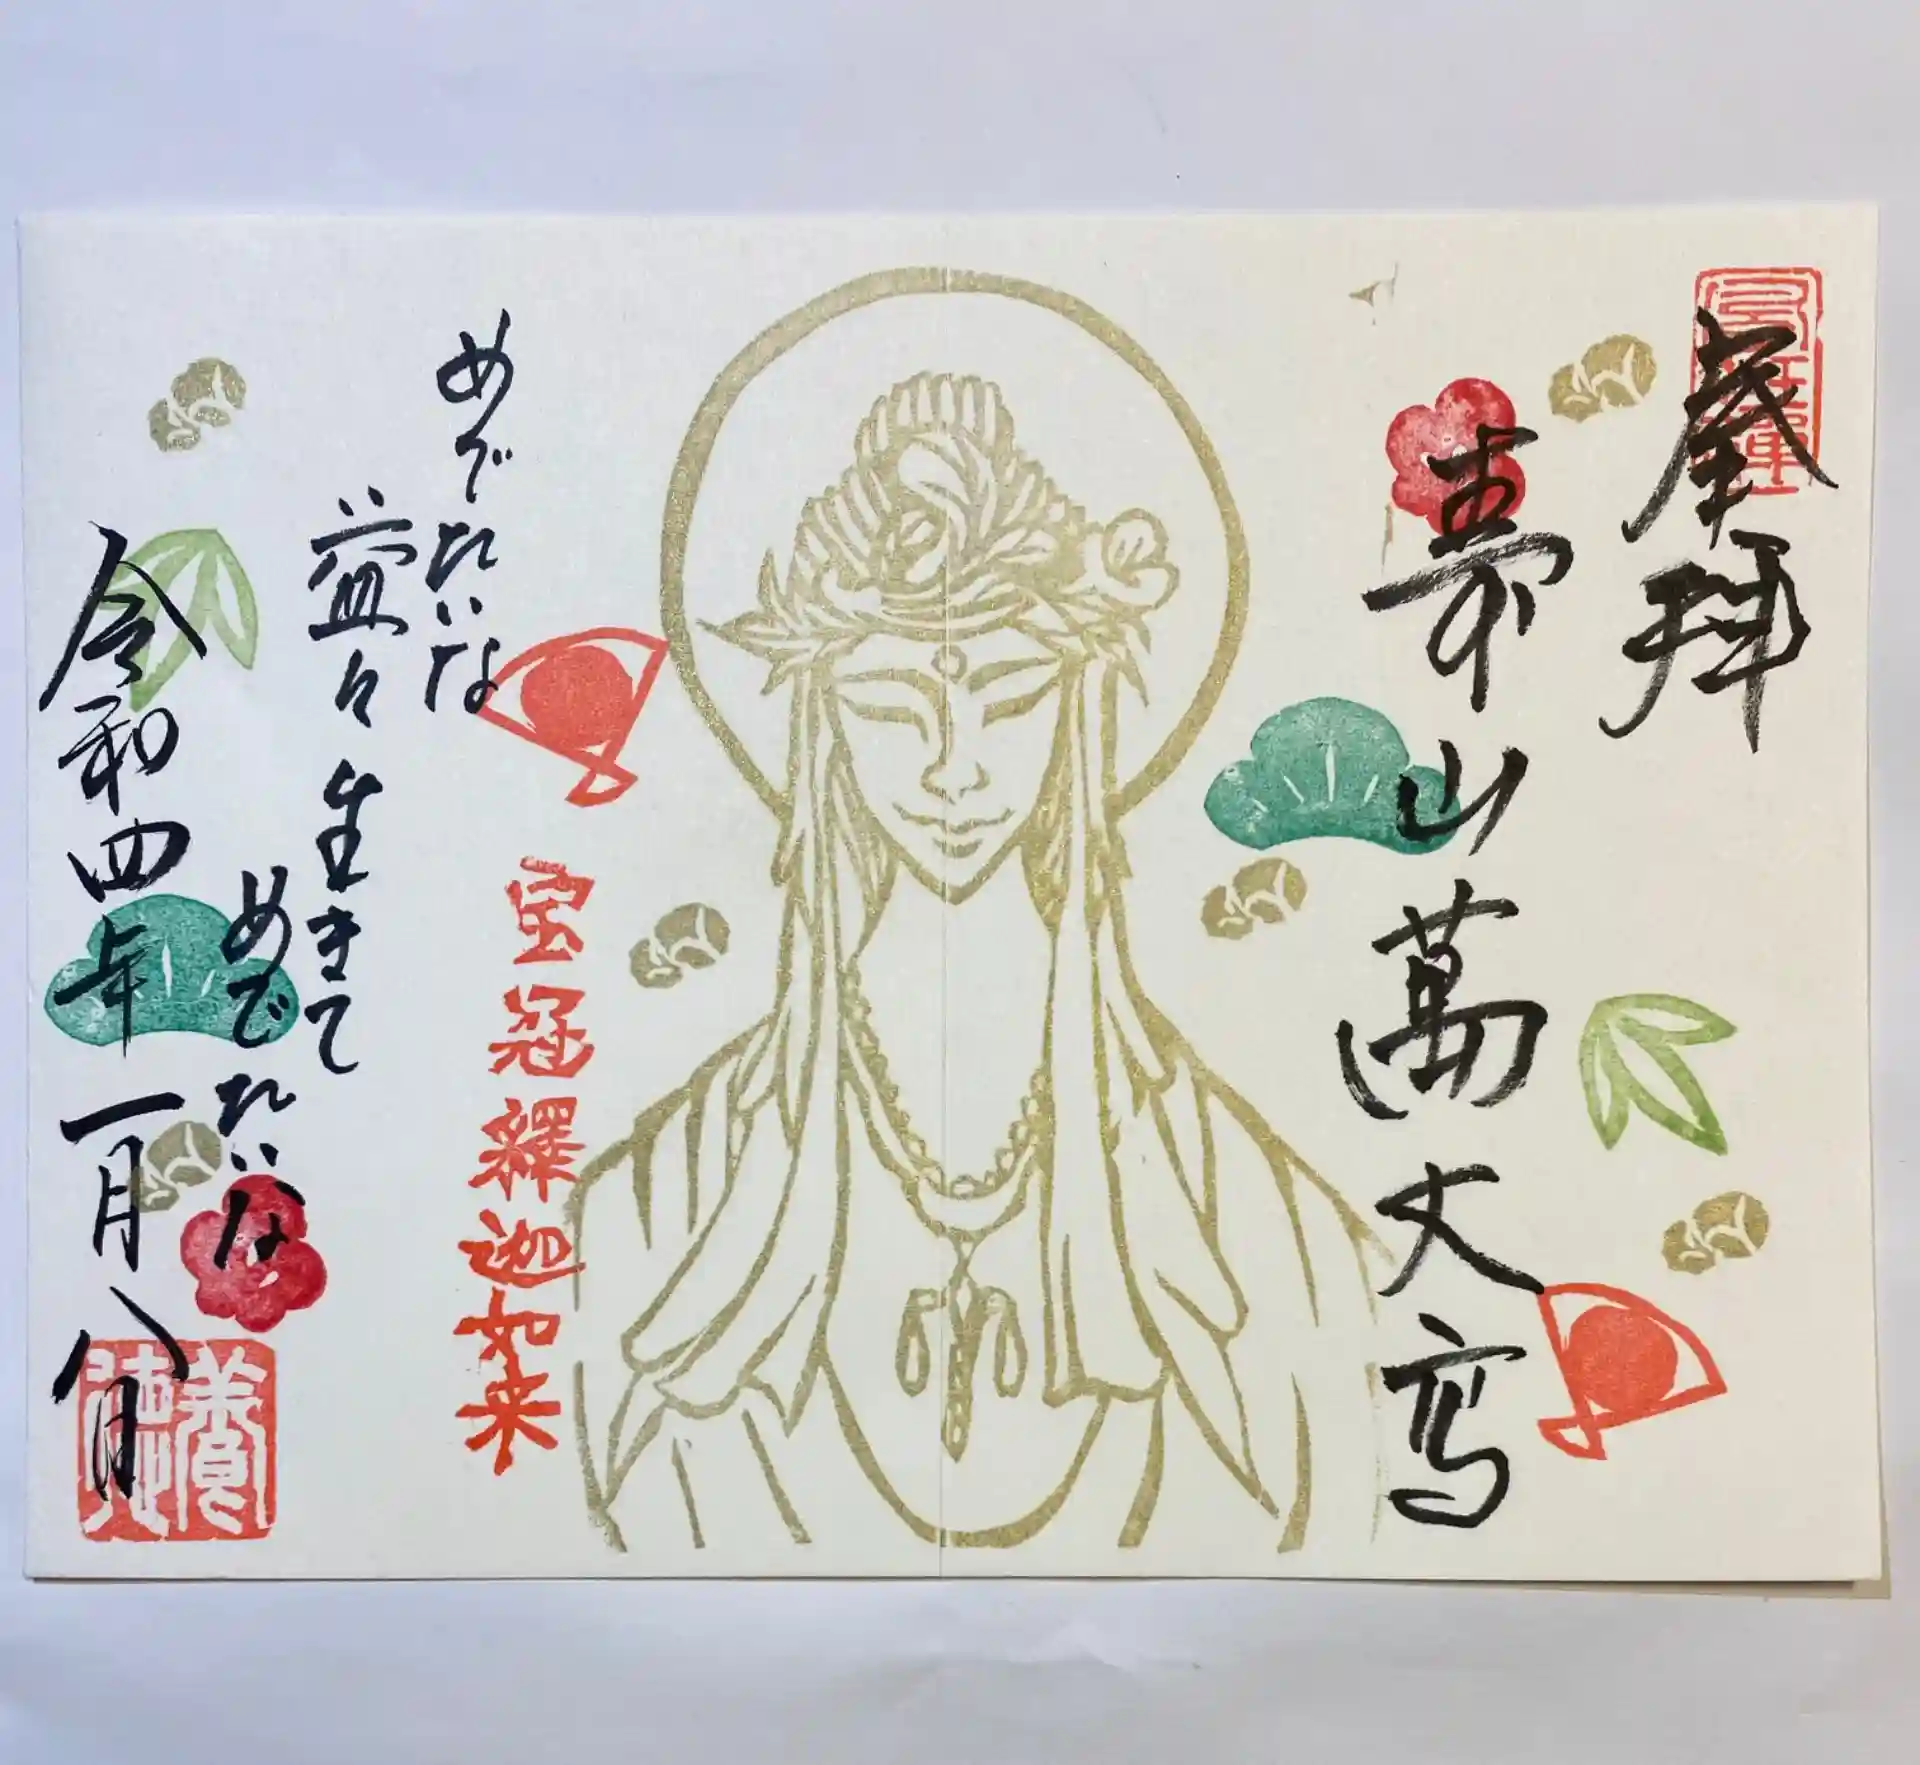 拝
寿山萬丈高
宝冠釋迦如来
めでたいな
益々生きて
めでたいな
令和四年一月八日